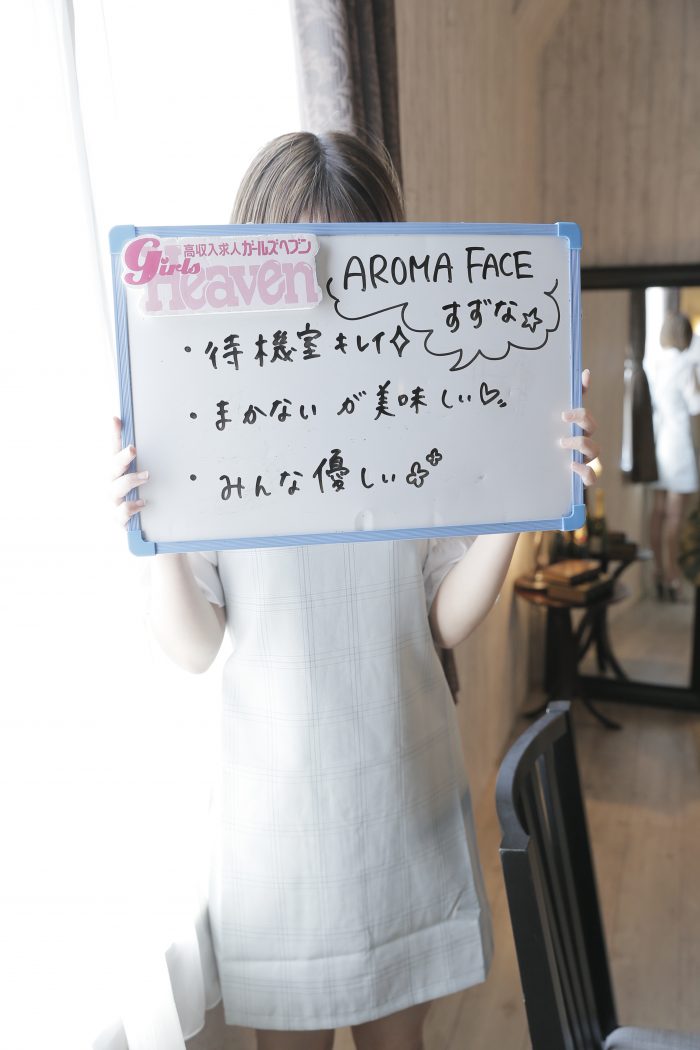 高収入求人ガールズヘブン
Girls
Heaven
AROMA FACE
すずな☆
・待機室キレイ✧
・まかないが美味しい♡
・みんな優しい